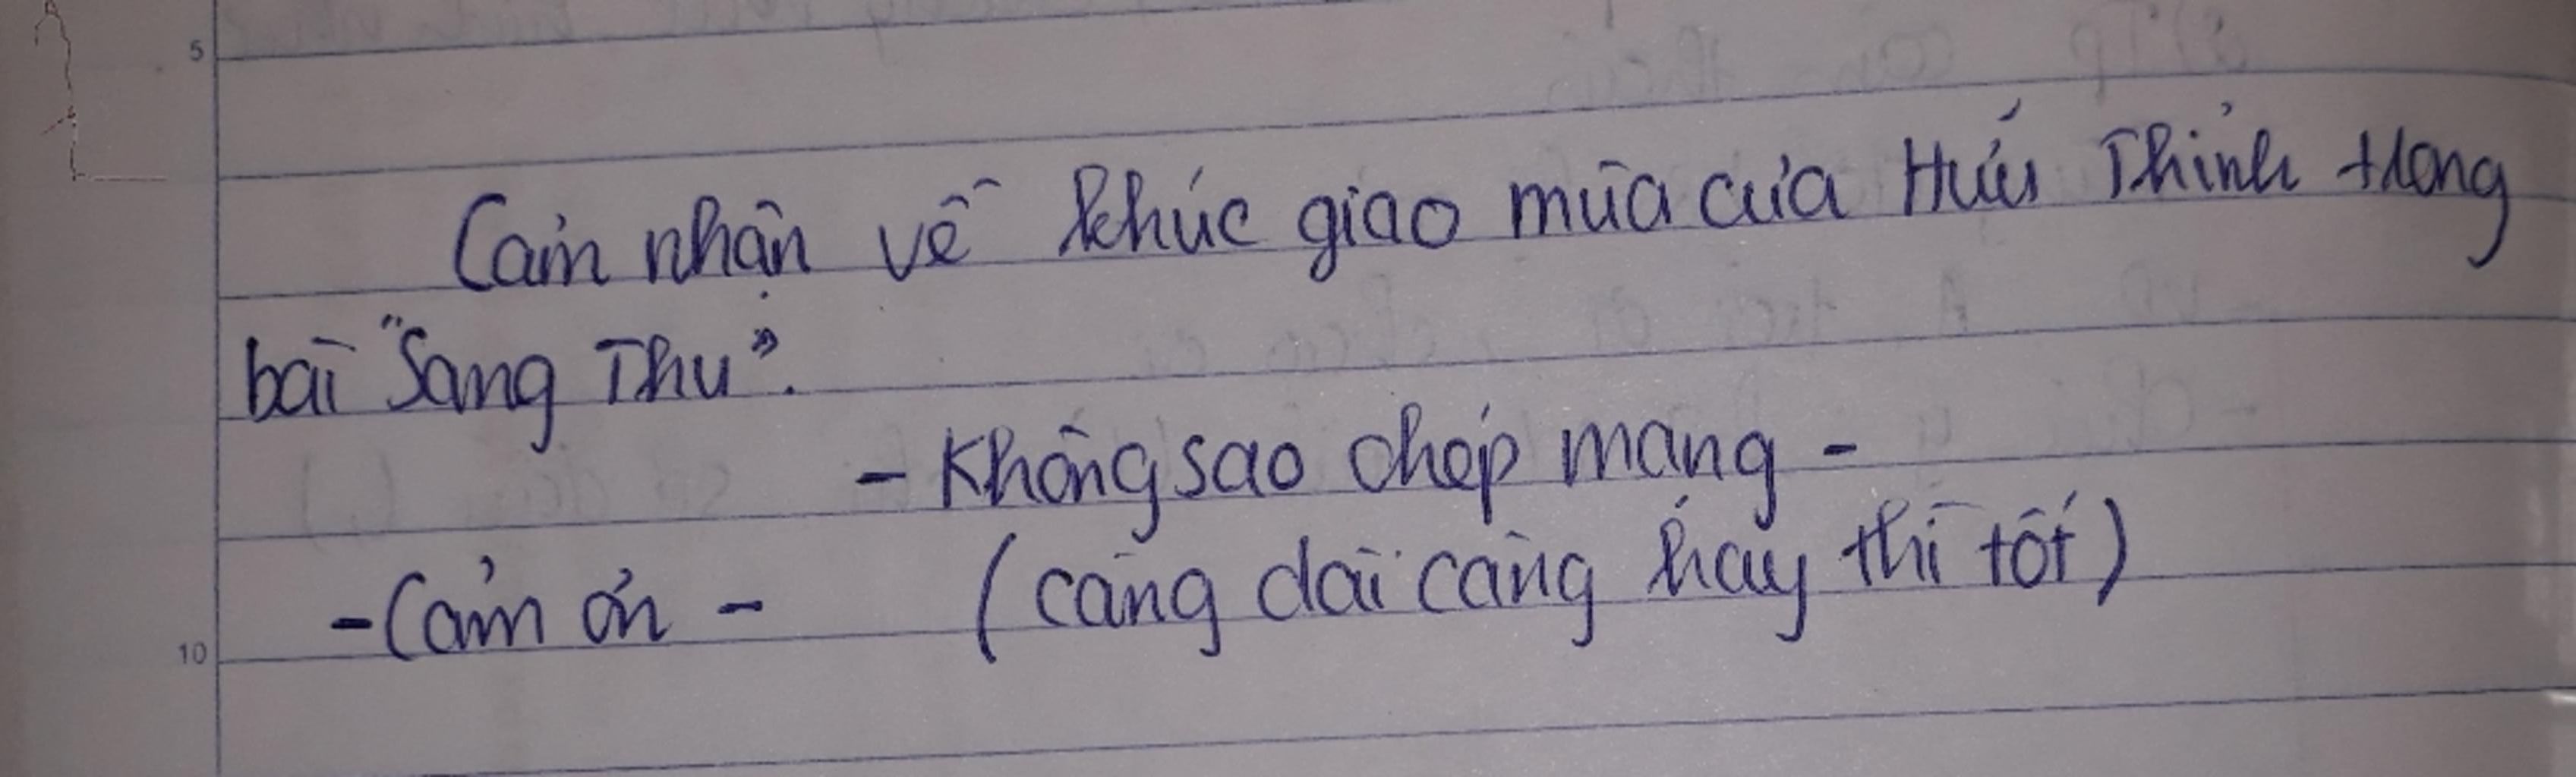 Cảm nhận về khúc giao mùa của Hữu Thỉnh trong
bài "Sang Thu".
- Không sao chép mạng -
- Cảm ơn - (càng dài càng hay thì tốt)
5
10